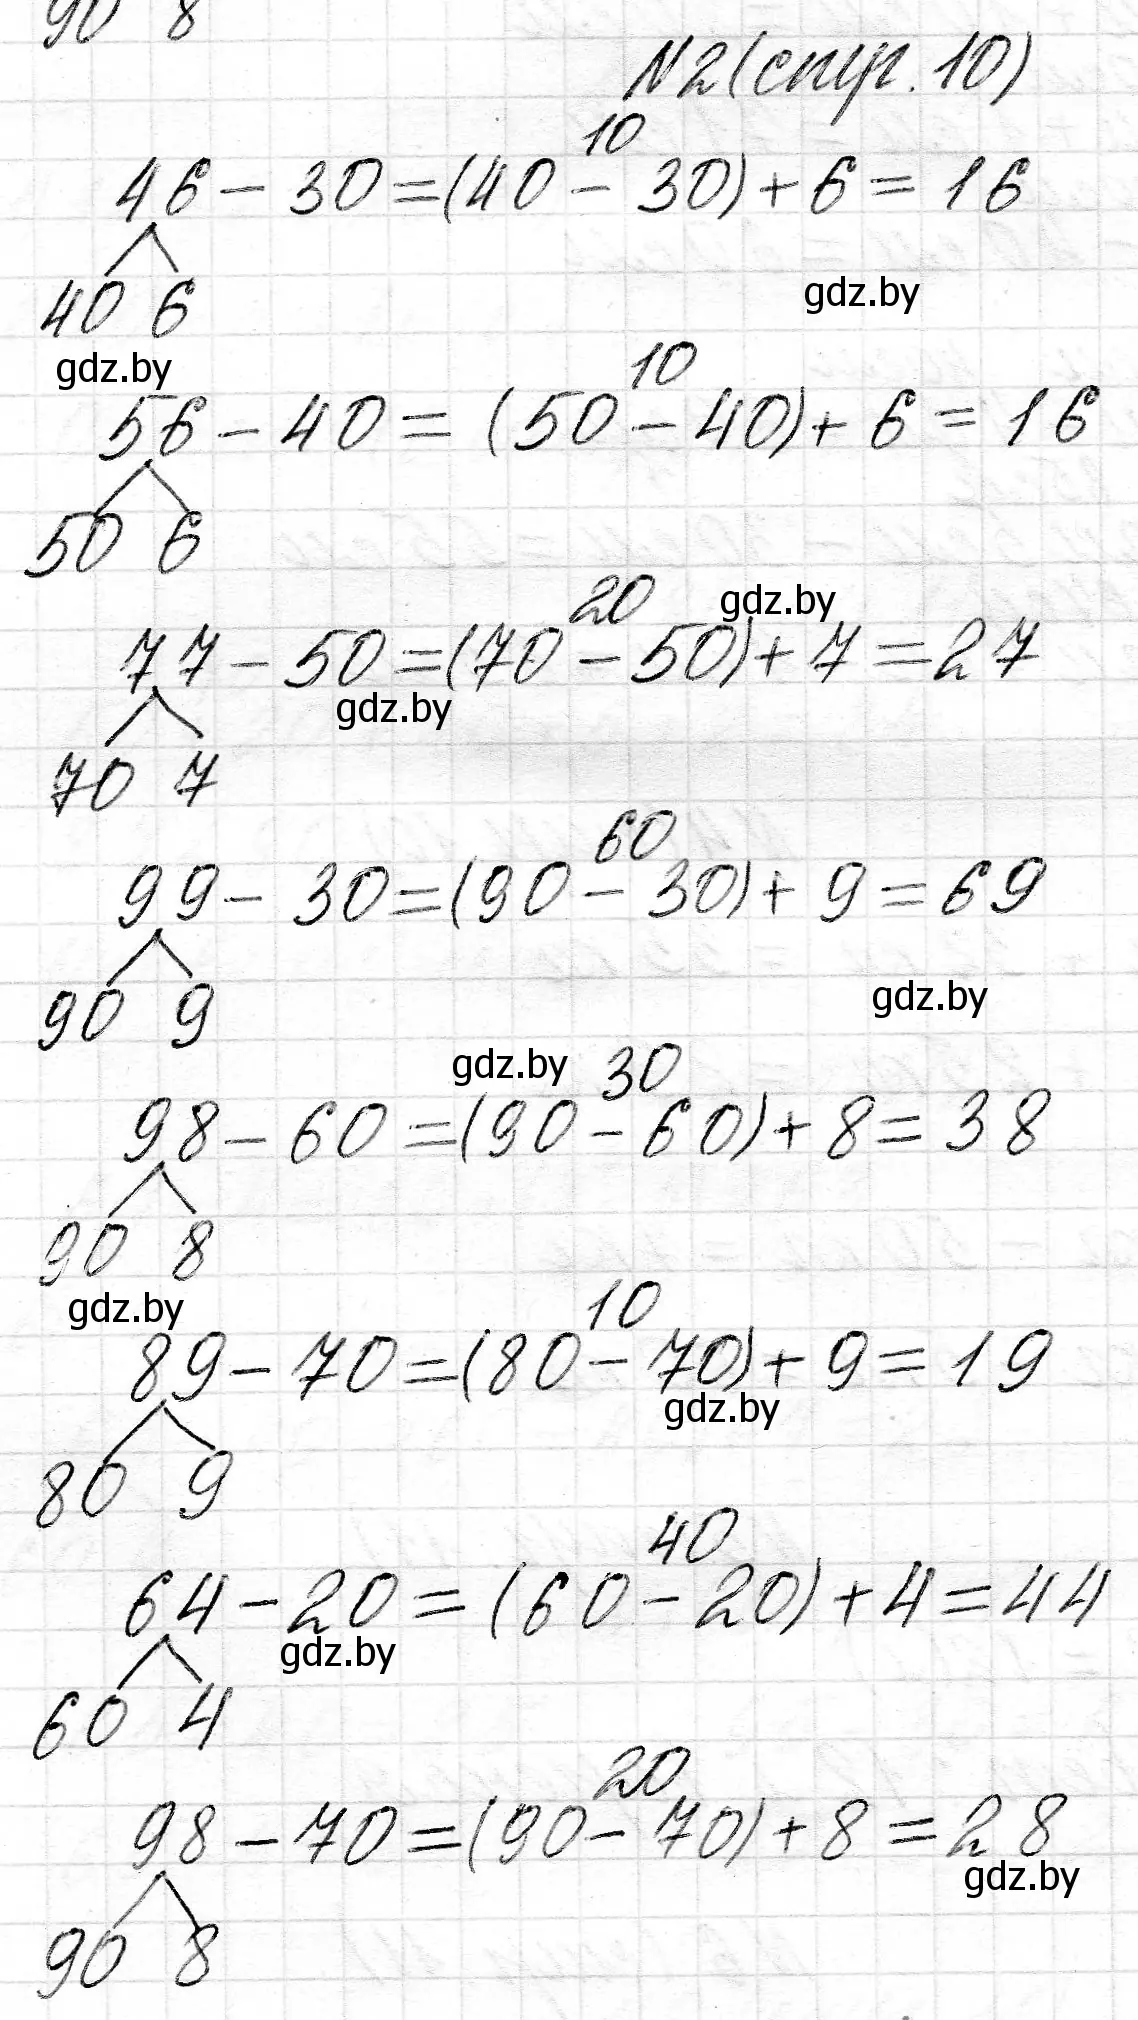 90 8
N2(стр. 10)
10
46 - 30 = (40 - 30) + 6 = 16
40 6
gdz.by
gdz.by
10
56 - 40 = (50 - 40) + 6 = 16
50 6
20
gdz.by
77 - 50 = (70 - 50) + 7 = 27
gdz.by
70 7
60
99 - 30 = (90 - 30) + 9 = 69
90 9
gdz.by
gdz.by
30
98 - 60 = (90 - 60) + 8 = 38
90 8
gdz.by
10
89 - 70 = (80 - 70) + 9 = 19
gdz.by
80 9
40
64 - 20 = (60 - 20) + 4 = 44
gdz.by
60 4
20
98 - 70 = (90 - 70) + 8 = 28
gdz.by
90 8